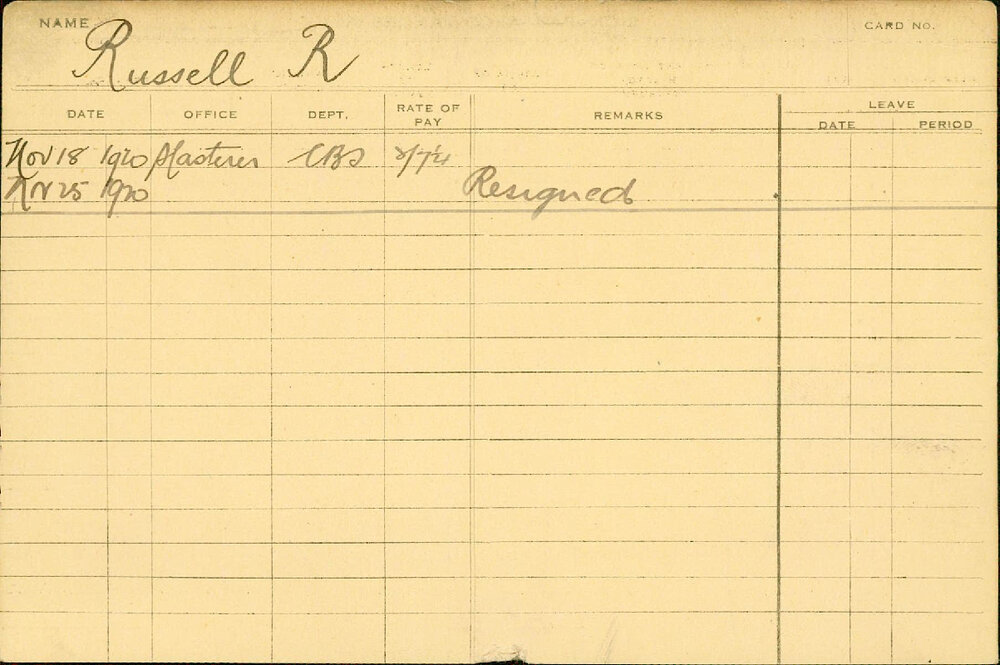 NAME Russell R CARD NO.
DATE OFFICE DEPT. RATE OF PAY REMARKS LEAVE
DATE PERIOD
Nov 18 1920 Plasterer CBS
Nov 25 1920 Resigned